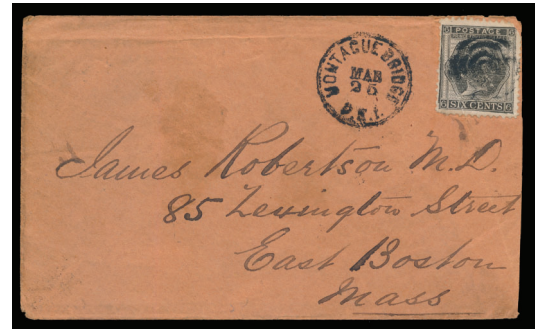 MONTAGUE BRIDGE
MAR
25
P.E.I.
POSTAGE
SIX CENTS
James Robertson M.D.
85 Lexington Street
East Boston
Mass